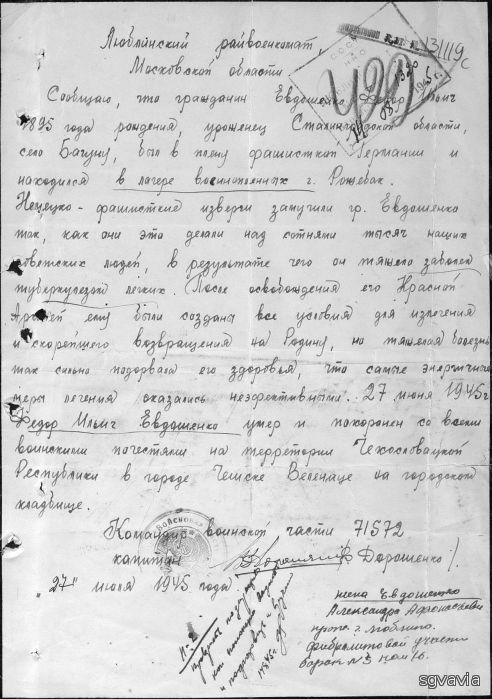 Люблинский райвоенкомат,
Московской области
131119с
Сообщаю, что гражданин Евдошенко Федор Ильич
1895 года рождения, уроженец Сталинградской области,
село Багуну, был в плену фашисткой Германии и
находился в лагере военнопленных г. Рожевак.
Немецко-фашисткие изверги замучили гр. Евдошенко
так, как они это делали над сотнями тысяч наших
советских людей, в результате чего он тяжело заболел
туберкулезом легких. После освобождения его Красной
Армией ему были созданы все условия для излечения
и скорейшего возвращения на Родину, но тяжелая болезнь
так сильно подорвала его здоровья, что самые энергичные
меры лечения оказались неэффективными. 27 июня 1945 г
Федор Ильич Евдошенко умер и похоронен со всеми
воинскими почестями на территории Чехословацкой
Республики в городе Чешске Веленице на городском
кладбище.
Командир воинской части 71572
капитан Дорошенко
"27" июня 1945 года
жена Евдошенко
Александра Афанасьевна
прож. г. Люблино.
фибролитовой участок
барак №3 ком 16.
sgvavia